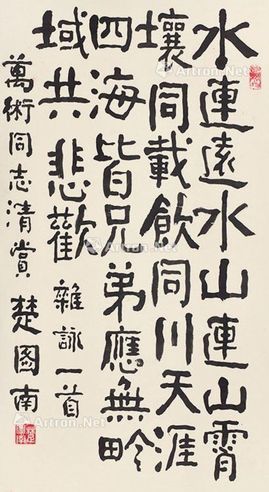 水連遠水山連山霄
壤同載飲同川天涯
四海皆兄弟應無畛
域共悲歡 雜詠一首
萬術同志清賞 楚圖南
Artron.Net